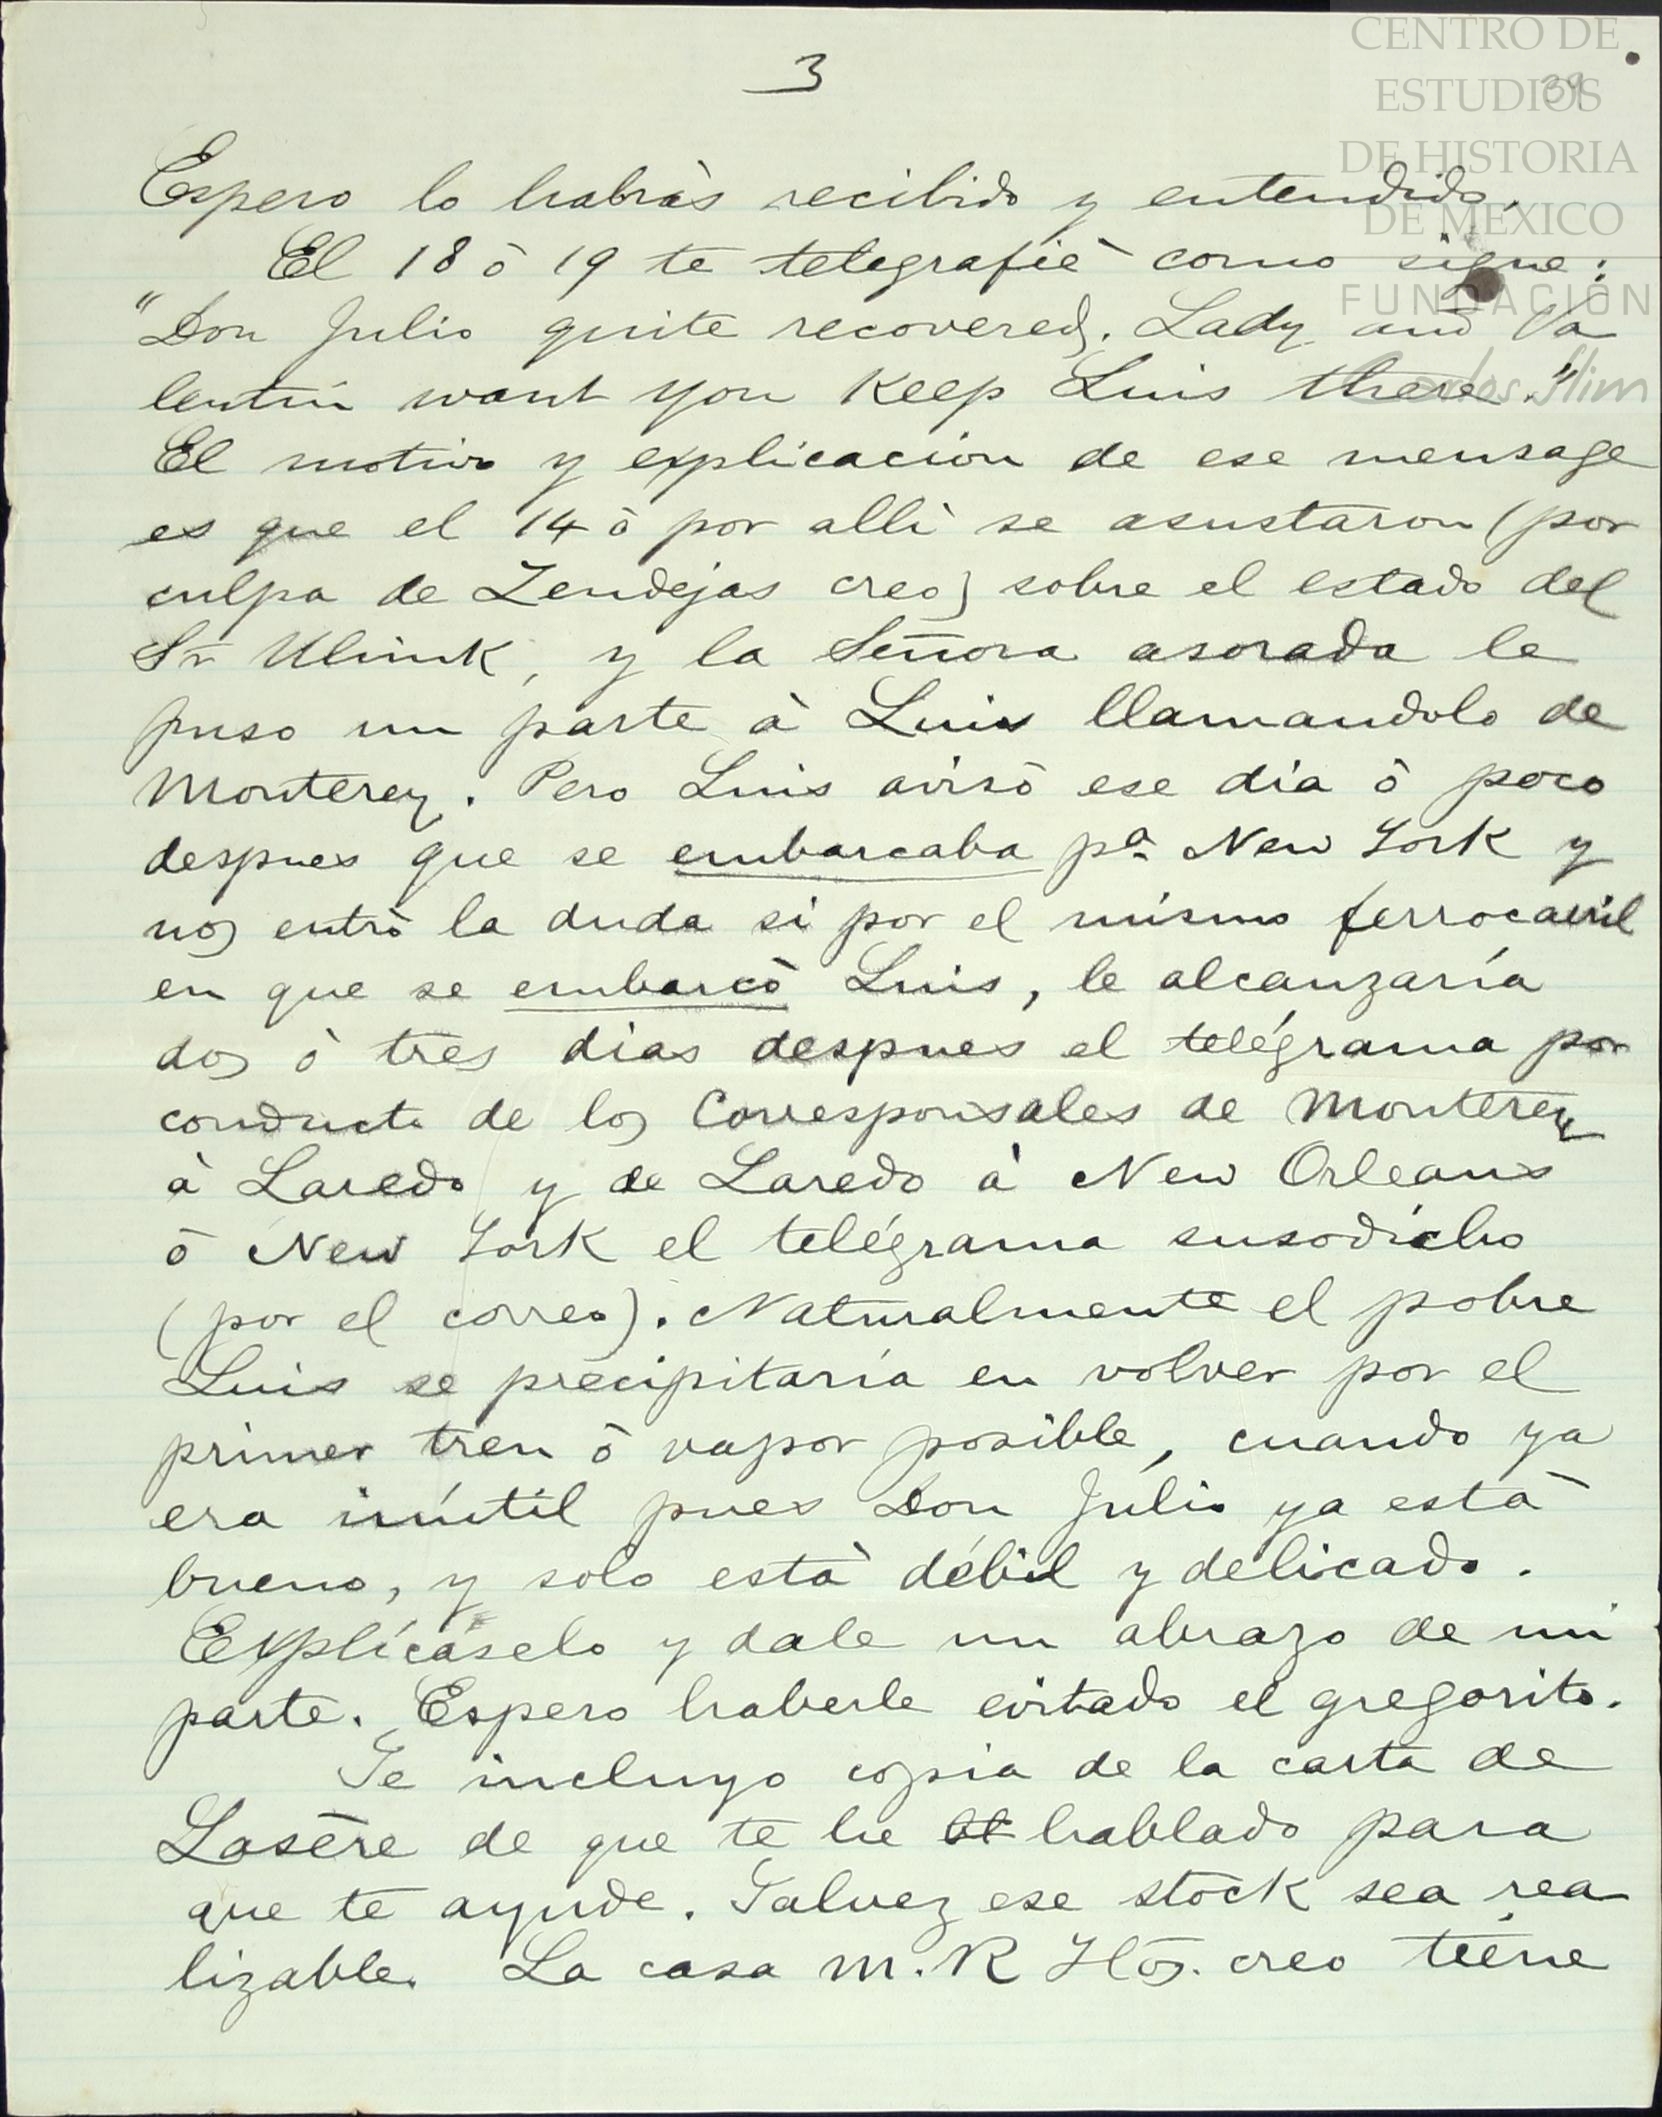 3
39
CENTRO DE
ESTUDIOS
DE HISTORIA
DE MEXICO
FUNDACIÓN
Carlos Slim
Espero lo habràs recibido y entendido.
El 18 ò 19 te telegrafiè como sigue:
"Don Julio quite recovered. Lady and Va
lentín want you keep Luis there."
El motivo y explicacion de ese mensage
es que el 14 ò por allì se asustaron (por
culpa de Zendejas creo) sobre el estado del
Sr Ulink, y la Señora asorada le
puso un parte à Luis llamandolo de
Monterey. Pero Luis avisò ese dia ò poco
despues que se embarcaba pa. New York y
nos entrò la duda si por el mismo ferrocarril
en que se embarcò Luis, le alcanzaría
dos ò tres dias despues el telégrama por
conducto de los Corresponsales de Monterey
à Laredo y de Laredo à New Orleans
ò New York el telégrama susodicho
(por el correo). Naturalmente el pobre
Luis se precipitaría en volver por el
primer tren ò vapor posible, cuando ya
era inútil pues Don Julio ya està
bueno, y solo està débil y delicado.
Explícáselo y dale un abrazo de mi
parte. Espero haberle evitado el gregorito.
Te incluyo copia de la carta de
Lasère de que te he hablado para
que te ayude. Talvez ese stock sea rea
lizable. La casa M. R Hos. creo tiéne